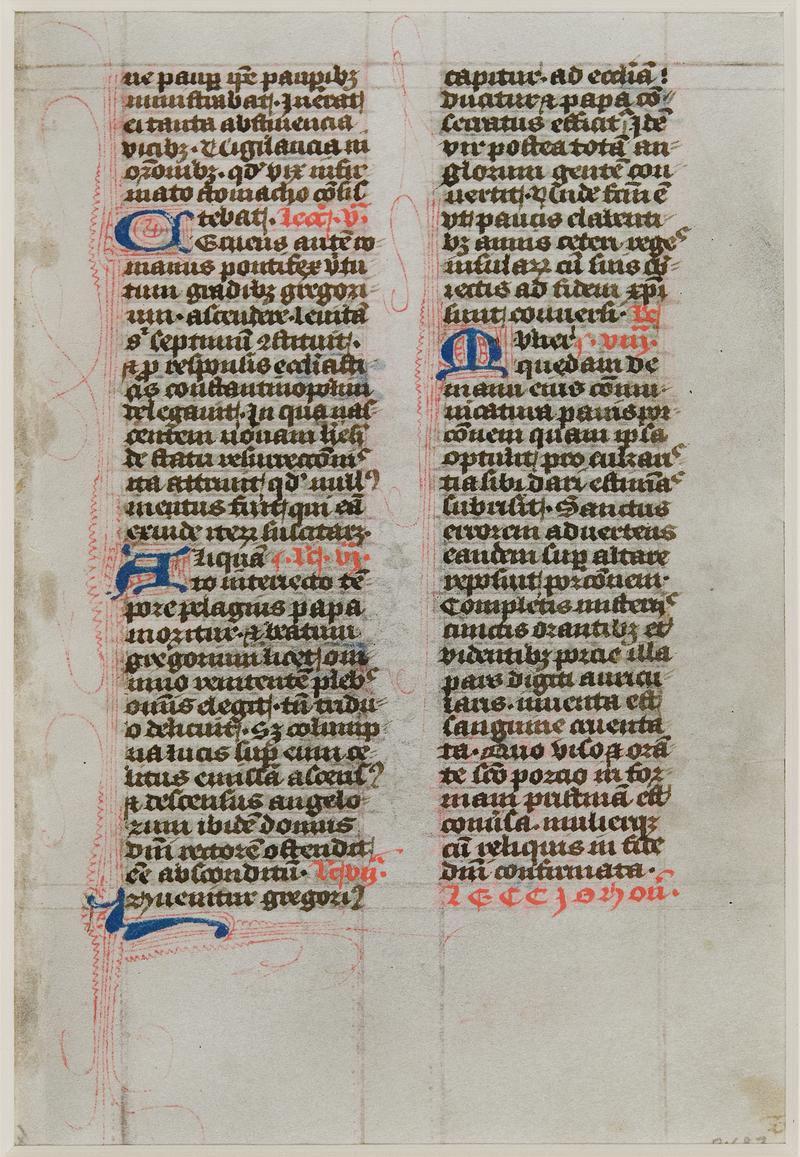 ne paup ipse paupibꝫ
ministrabat. Inerat
ei tanta abstinencia
vicibꝫ. & vigilancia in
orōnibꝫ. qd' vix infir
mato stomacho
tebat. Lecc. v.
Decius autē ro-
manus pontifex
tum gradibꝫ gregori-
um. ascendere. levitā
septimū ꝯstituit.
⁊ p responsis eccliasti
cis constantinopolim
delegavit. In qua nas-
centem novam
de statu resurreccōis
ita attrivit qd' null'
inventus fuit qui eā
exinde
Aliquā Lc. vi.
to interiecto tē-
pore pelagius papa
moritur. & beatum
gregorium licet om-
nino renitentē plebs
omīs elegit. tū tridu-
o delituit. Sꝫ colump
na lucis sup eum ce-
litus emissa
⁊ descensus angelo
rum ibidē domus
dn̄i rectorē ostendit
eē absconditū. Lc. vij.
Invenitur gregori'
capitur. ad eccliā
ducitur ⁊ papa cō-
secratus efficit. Idē
vir postea totā an-
glorum gentē con-
vertit. Unde
vt paucis
bꝫ annis ceteri reges
insularꝝ cū suis
iectis ad fidem xp̄i
sunt conversi. Lc
Mulier viij.
quedam de
manu eius cōmu-
nicatura panis por-
cōnem quam ipsa
optulit pro
tia sibi dari
subrisit. Sanctus
errorem advertens
eandem sup altare
reposuit porcōnem.
Completis misteriis
cunctis orantibꝫ et
videntibꝫ porcio illa
pars digiti auricu
laris. inventa est
sanguine cruenta
ta. Quo viso ⁊ orā
te sc̄o porcio in for-
mam pristinā est
conv̄sa. mulierqꝫ
cū reliquis in fide
dn̄i confirmata.